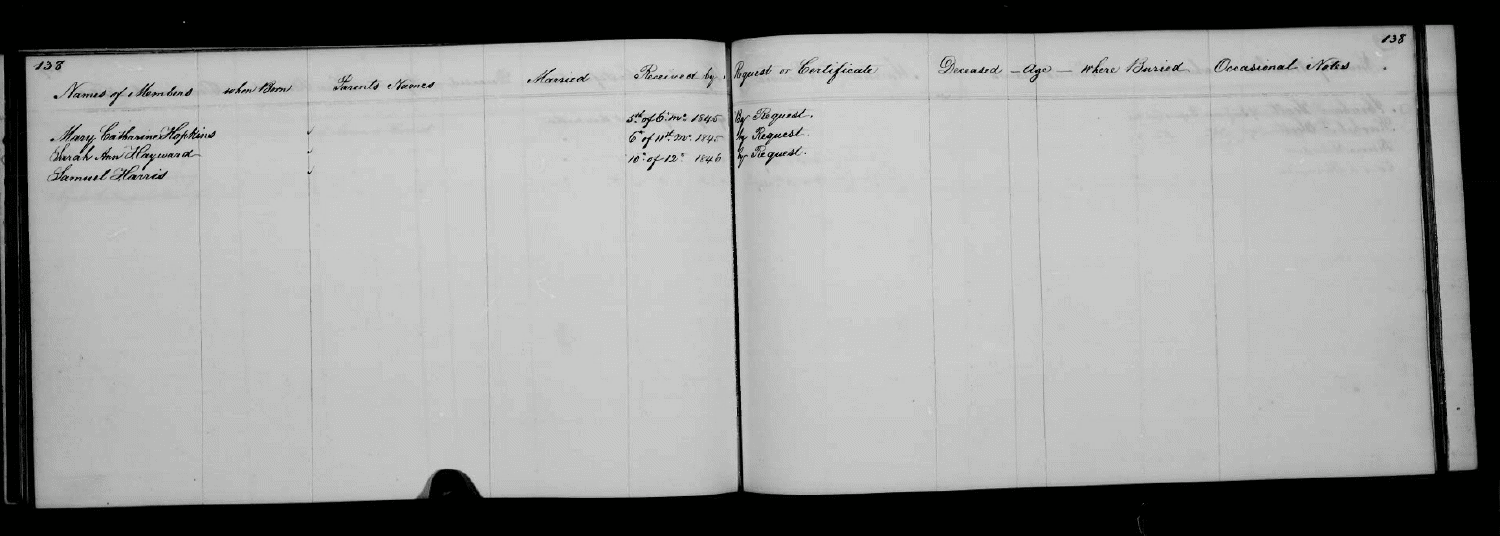 138 138
Names of Members when Born Parents Names Married Received by Request or Certificate Deceased - Age - where Buried Occasional Notes
Mary Catharine Hopkins 5th of 6 mo 1845 By Request.
Sarah Ann Hayward 6th of 11th mo 1845 by Request
Samuel Harris 10th of 12th 1846 by Request.